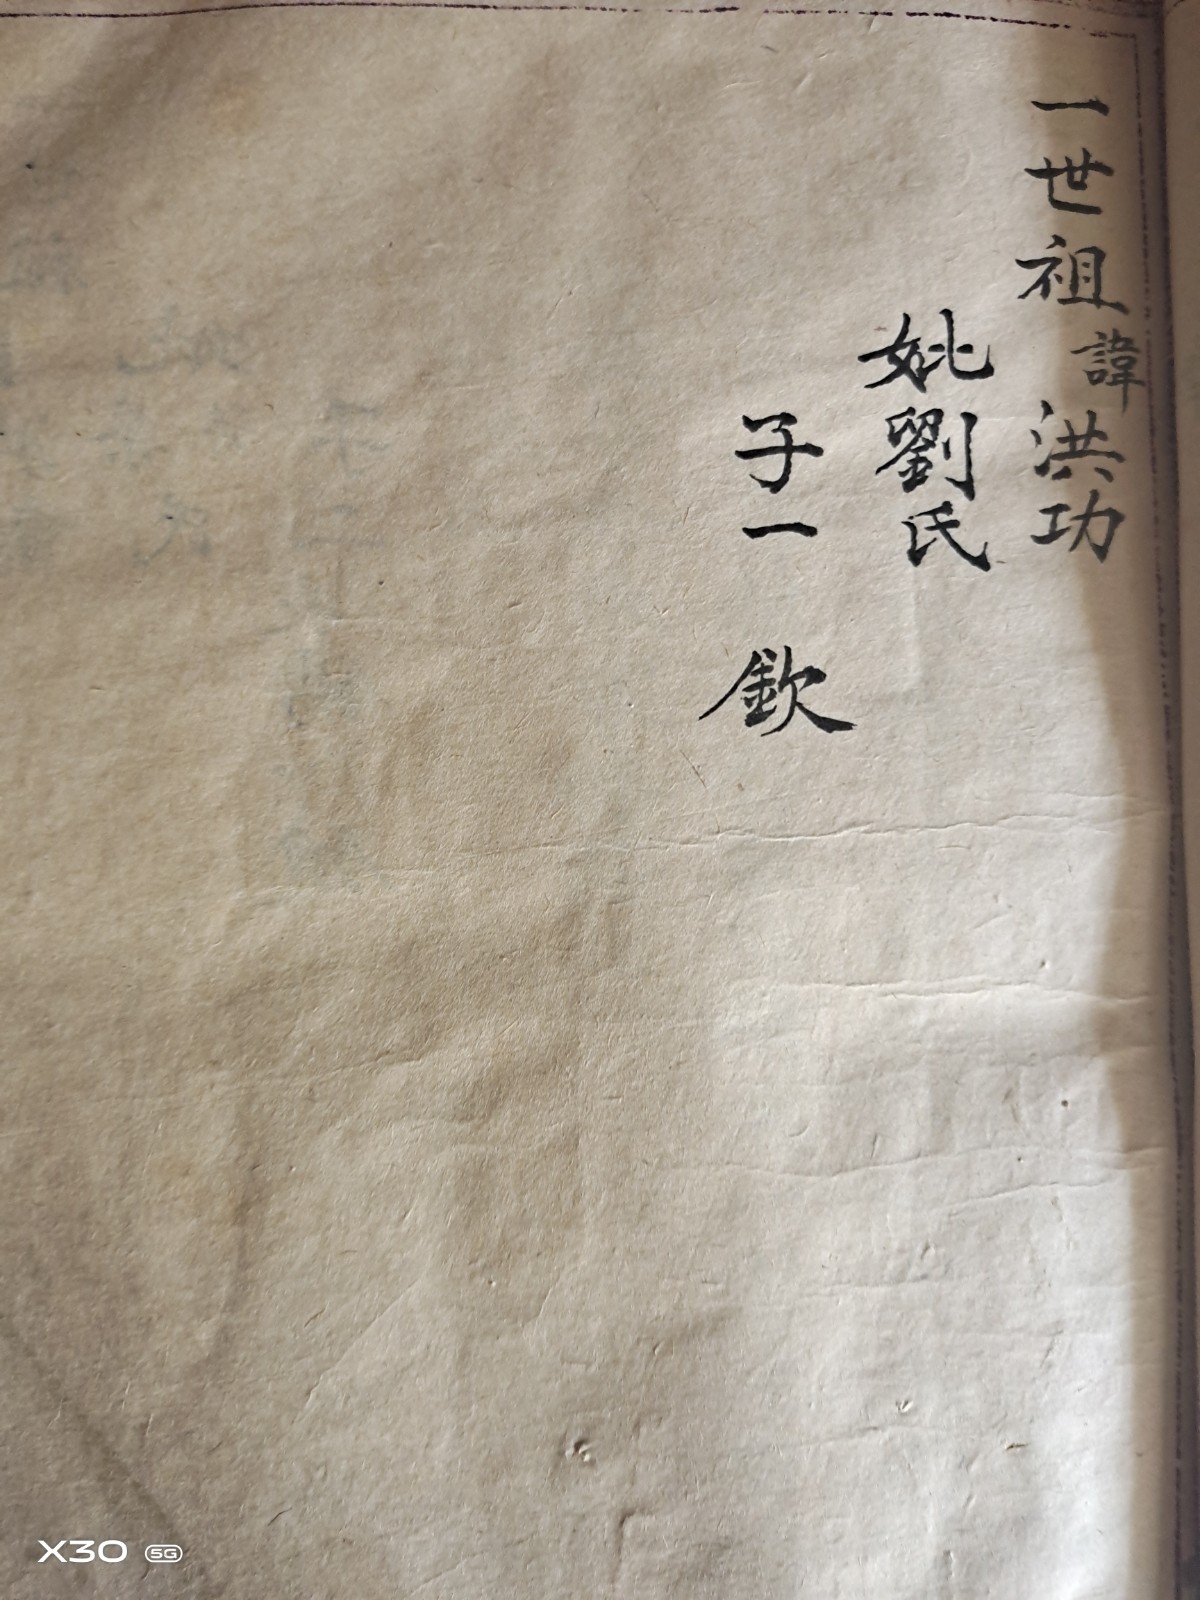 一世祖諱洪功
妣劉氏
子一 欽
X30 5G